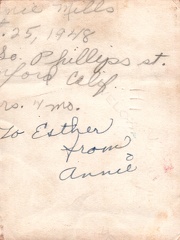 nie Mills
. 25, 1948
So. Phillips st.
nford Calif.
rs. 4 mo.
To Esther
from
Annie